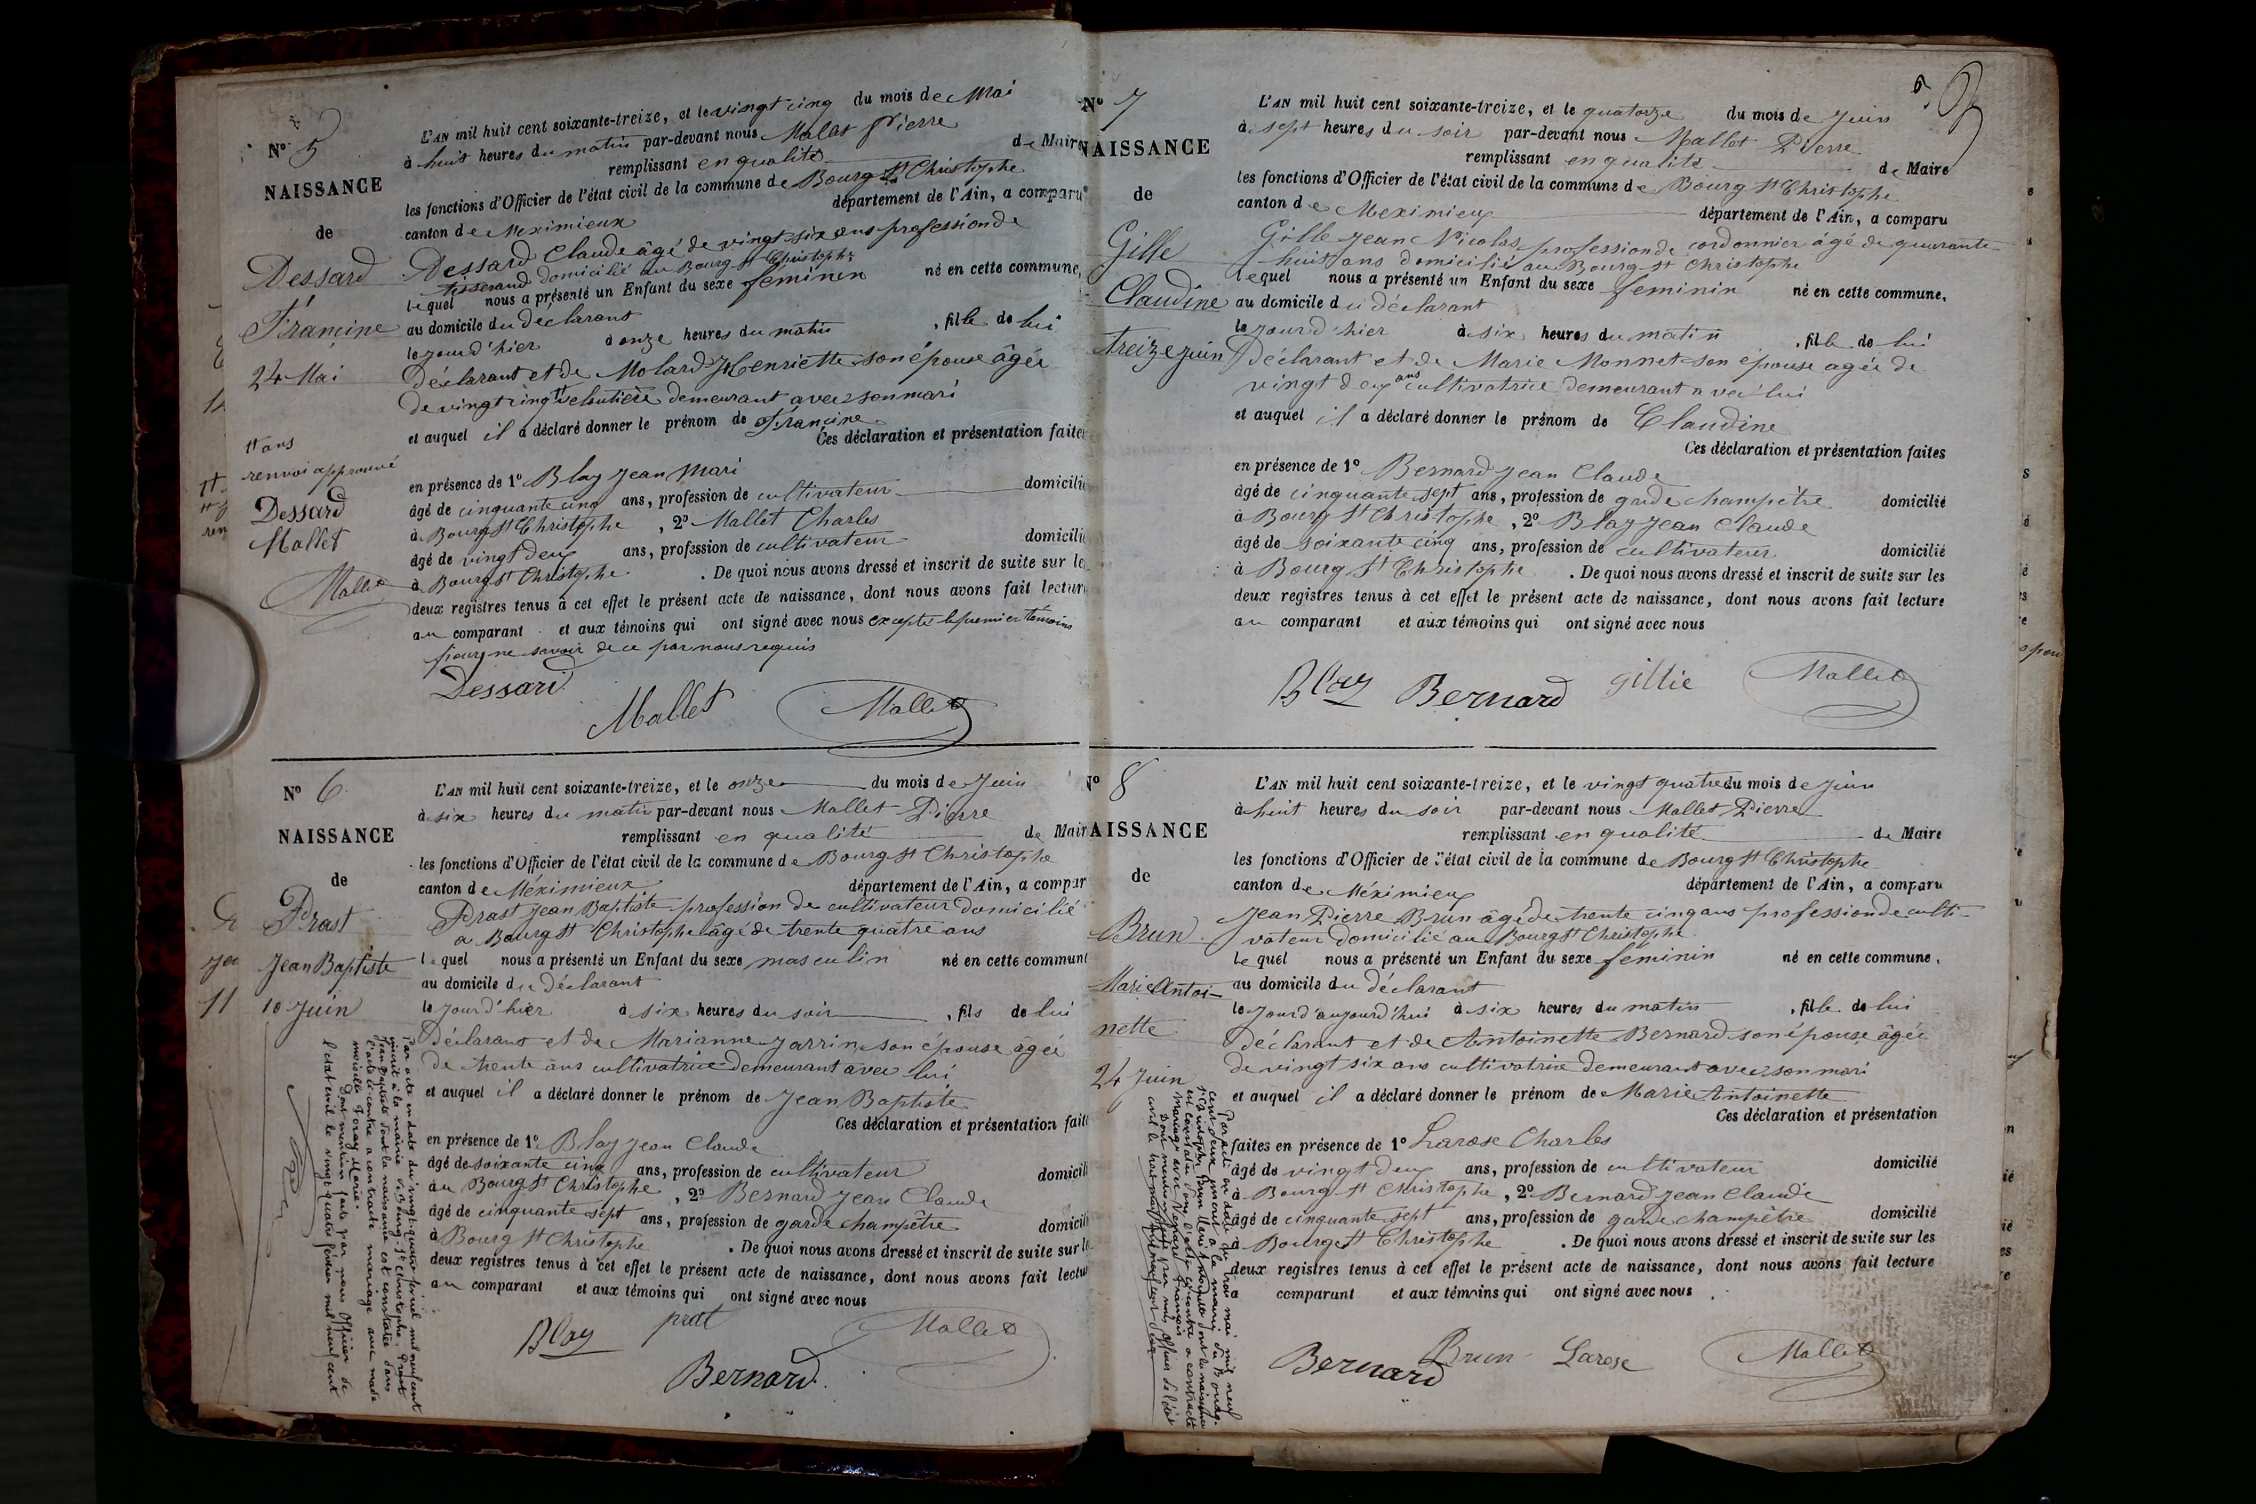 N° 5
NAISSANCE
de
Dessard
Francine
24 Mai
tt ans
renvoi approuvé
Dessard
Mallet
Mallet
L'AN mil huit cent soixante-treize, et le vingt cinq du mois de Mai
à huit heures du matin par-devant nous Mallet Pierre
remplissant en qualité de Maire
les fonctions d'Officier de l'état civil de la commune de Bourg St Christophe
canton de Meximieux département de l'Ain, a comparu
Dessard Claude âgé de vingt six ans profession de
tisserand domicilié au Bourg St Christophe
lequel nous a présenté un Enfant du sexe féminin né en cette commune,
au domicile du déclarant
le jour d'hier à onze heures du matin , fille de lui
déclarant et de Molard Henriette son épouse âgée
de vingt cinq tt veloutière demeurant avec son mari
et auquel il a déclaré donner le prénom de Francine
Ces déclaration et présentation faites
en présence de 1° Blay Jean Mari
âgé de cinquante cinq ans, profession de cultivateur domicilié
à Bourg St Christophe , 2° Mallet Charles
âgé de vingt deux ans, profession de cultivateur domicilié
à Bourg St Christophe . De quoi nous avons dressé et inscrit de suite sur les
deux registres tenus à cet effet le présent acte de naissance, dont nous avons fait lecture
au comparant et aux témoins qui ont signé avec nous excepté le premier témoins
pour ne savoir de ce par nous requis
Dessard
Mallet Mallet
N° 6
NAISSANCE
de
Prast
Jean Baptiste
10 Juin
L'AN mil huit cent soixante-treize, et le onze du mois de Juin
à six heures du matin par-devant nous Mallet Pierre
remplissant en qualité de Maire
les fonctions d'Officier de l'état civil de la commune de Bourg St Christophe
canton de Méximieux département de l'Ain, a compar
Prast Jean Baptiste profession de cultivateur domicilié
a Bourg St Christophe âgé de trente quatre ans
lequel nous a présenté un Enfant du sexe masculin né en cette commune
au domicile du déclarant
le jour d'hier à six heures du soir , fils de lui
Déclarant et de Marianne Jarrin son épouse âgée
de trente ans cultivatrice demeurant avec lui
et auquel il a déclaré donner le prénom de Jean Baptiste
Ces déclaration et présentation faite
en présence de 1° Blay Jean Claude
âgé de soixante cinq ans, profession de cultivateur domicili
au Bourg St Christophe , 2° Bernard Jean Claude
âgé de cinquante sept ans, profession de garde champêtre domicili
à Bourg St Christophe . De quoi nous avons dressé et inscrit de suite sur le
deux registres tenus à cet effet le présent acte de naissance, dont nous avons fait lectu
au comparant et aux témoins qui ont signé avec nous
Blay prat Mallet
Bernard
Par acte en date du vingt-quatre février mil neuf cent
inscrit à la mairie de Bourg-St Christophe, Prast
Jean Baptiste dont la naissance est constatée dans
l'acte ci-contre a contracté mariage avec made
moiselle Foray Marie.
Dont mention faite par nous Officier de
l'état civil le vingt quatre février mil neuf cent
N° 7
NAISSANCE
de
Gille
Claudine
treize juin
L'AN mil huit cent soixante-treize, et le quatorze du mois de Juin
à sept heures du soir par-devant nous Mallet Pierre
remplissant en qualité de Maire
les fonctions d'Officier de l'état civil de la commune de Bourg St Christophe
canton de Meximieux département de l'Ain, a comparu
Gille Jean Nicolas profession de cordonnier âgé de quarante
huit ans domicilié au Bourg St Christophe
lequel nous a présenté un Enfant du sexe féminin né en cette commune,
au domicile du déclarant
le jour d'hier à six heures du matin , fille de lui
Déclarant et de Marie Monnet son épouse agée de
vingt deux ans cultivatrice demeurant avec lui
et auquel il a déclaré donner le prénom de Claudine
Ces déclaration et présentation faites
en présence de 1° Bernard Jean Claude
âgé de cinquante sept ans, profession de garde champêtre domicilié
à Bourg St Christophe , 2° Blay Jean Claude
âgé de soixante cinq ans, profession de cultivateur domicilié
à Bourg St Christophe . De quoi nous avons dressé et inscrit de suite sur les
deux registres tenus à cet effet le présent acte de naissance, dont nous avons fait lecture
au comparant et aux témoins qui ont signé avec nous
Blay Bernard gillie Mallet
N° 8
NAISSANCE
de
Brun
Marie Antoi-
nette
24 Juin
L'AN mil huit cent soixante-treize, et le vingt quatre du mois de Juin
à huit heures du soir par-devant nous Mallet Pierre
remplissant en qualité de Maire
les fonctions d'Officier de l'état civil de la commune de Bourg St Christophe
canton de Méximieux département de l'Ain, a comparu
Jean Pierre Brun âgé de trente cinq ans profession de culti-
vateur domicilié au Bourg St Christophe
lequel nous a présenté un Enfant du sexe féminin né en cette commune,
au domicile du déclarant
le jour d'aujourd'hui à six heures du matin , fille de lui
déclarant et de Antoinette Bernard son épouse âgée
de vingt six ans cultivatrice demeurant avec son mari
et auquel il a déclaré donner le prénom de Marie Antoinette
Ces déclaration et présentation
faites en présence de 1° Larose Charles
âgé de vingt deux ans, profession de cultivateur domicilié
à Bourg St Christophe , 2° Bernard Jean Claude
âgé de cinquante sept ans, profession de garde champêtre domicilié
à Bourg St Christophe . De quoi nous avons dressé et inscrit de suite sur les
deux registres tenus à cet effet le présent acte de naissance, dont nous avons fait lecture
a comparant et aux témoins qui ont signé avec nous
Bernard Brun Larose Mallet